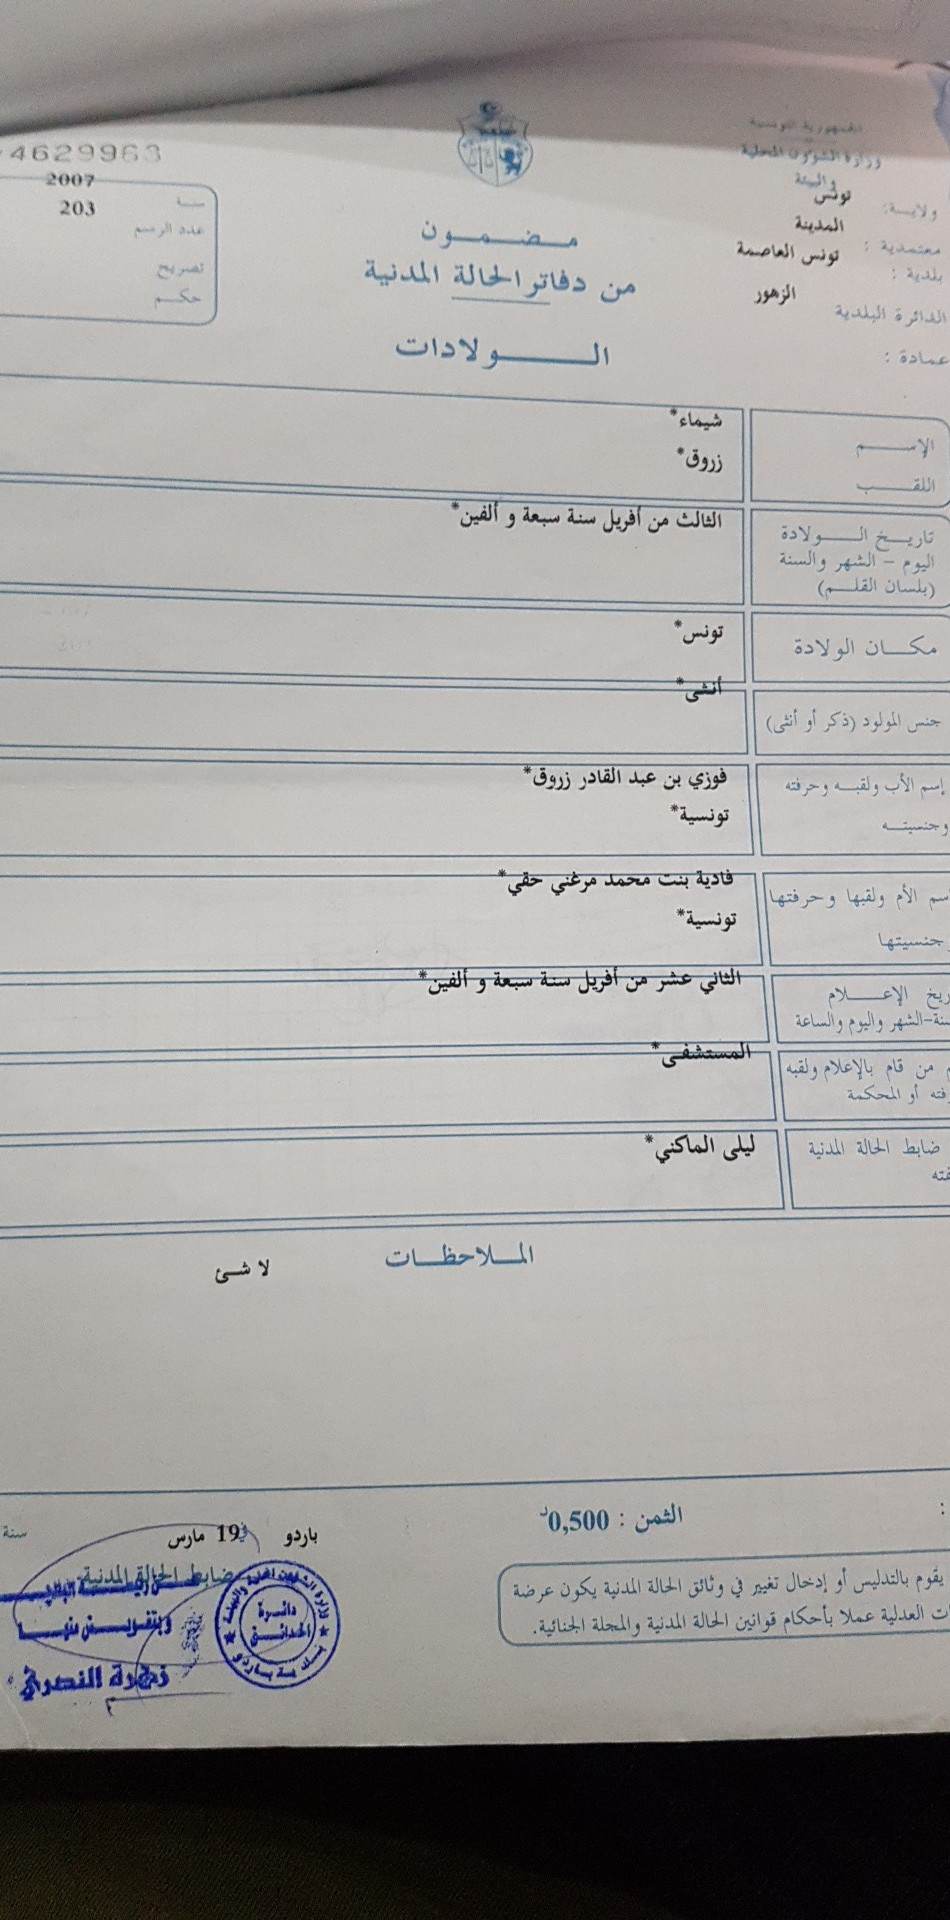 الجمهورية التونسية
وزارة الشؤون المحلية
والبيئة
ولاية: تونس
معتمدية : المدينة
بلدية : تونس العاصمة
الدائرة البلدية الزهور
عمادة :
4629963
سنة 2007
عدد الرسم 203
تصريح
حكم
مضمون
من دفاتر الحالة المدنية
الولادات
الإسم شيماء*
اللقب زروق*
تاريخ الولادة الثالث من أفريل سنة سبعة و ألفين*
اليوم - الشهر والسنة
(بلسان القلم)
مكان الولادة تونس*
جنس المولود (ذكر أو أنثى) أنثى*
إسم الأب ولقبه وحرفته فوزي بن عبد القادر زروق*
وجنسيته تونسية*
سم الأم ولقبها وحرفتها فادية بنت محمد مرغني حقي*
جنسيتها تونسية*
ريخ الإعلام الثاني عشر من أفريل سنة سبعة و ألفين*
نة-الشهر واليوم والساعة
من قام بالإعلام ولقبه المستشفى*
فته أو المحكمة
ضابط الحالة المدنية ليلى الماكني*
فته
الملاحظات
لا شئ
الثمن : 0,500د
باردو في 19 مارس سنة
ضابط الحالة المدنية
وبتفويض منها
زهرة النصري
وزارة الشؤون المحلية والبيئة
دائرة
الحدائق
بلدية باردو
يقوم بالتدليس أو إدخال تغيير في وثائق الحالة المدنية يكون عرضة
ات العدلية عملا بأحكام قوانين الحالة المدنية والمجلة الجنائية.